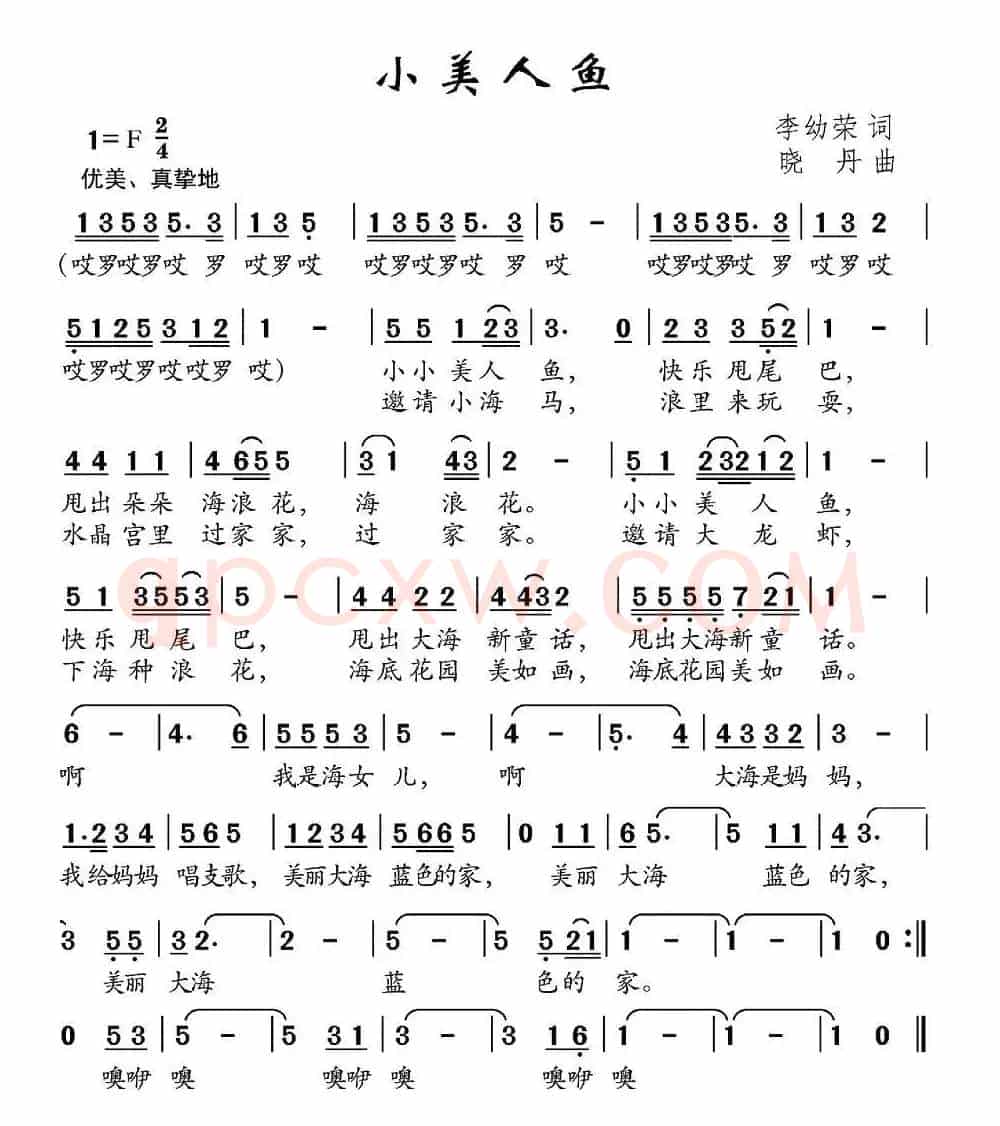 小美人鱼
李幼荣 词
1=F 2/4
晓 丹 曲
优美、真挚地
1353 5. 3 | 1 3 5 | 1353 5. 3 | 5 - | 1353 5. 3 | 1 3 2 |
（哎罗哎罗哎 罗 哎罗哎 哎罗哎罗哎 罗 哎 哎罗哎罗哎 罗 哎罗哎
5125 3 12 | 1 - | 5 5 1 23 | 3. 0 | 2 3 3 52 | 1 - |
哎罗哎罗哎哎罗 哎） 小小美人 鱼， 快乐甩尾 巴，
邀请小海 马， 浪里来玩 耍，
4 4 1 1 | 4 65 5 | 3 1 43 | 2 - | 5 1 2321 2 | 1 - |
甩出朵朵 海浪花， 海 浪 花。 小小美 人 鱼，
水晶宫里 过家家， 过 家 家。 邀请大 龙 虾，
gpcxw.COM
5 1 3553 | 5 - | 4 4 2 2 | 4 43 2 | 5 5 5 5 7 21 | 1 - |
快乐甩尾 巴， 甩出大海 新童话， 甩出大海新童 话。
下海种浪 花， 海底花园 美如画， 海底花园美如 画。
6 - | 4. 6 | 5 5 5 3 | 5 - | 4 - | 5. 4 | 4 3 3 2 | 3 - |
啊 我是海女 儿， 啊 大海是妈 妈，
1.2 3 4 | 5 6 5 | 1 2 3 4 | 5 66 5 | 0 1 1 | 6 5. | 5 1 1 | 4 3. |
我给妈妈 唱支歌， 美丽大海 蓝色的家， 美丽 大海 蓝色 的家，
3 5 5 | 3 2. | 2 - | 5 - | 5 - | 5 21 | 1 - | 1 - | 1 0 :‖
美丽 大海 蓝 色的 家。
0 5 3 | 5 - | 5 3 1 | 3 - | 3 1 6 | 1 - | 1 - | 1 0 ‖
噢咿 噢 噢咿 噢 噢咿 噢